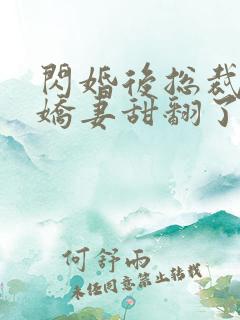 閃婚後總裁
嬌妻甜翻了
何舒雨
未經同意禁止轉載